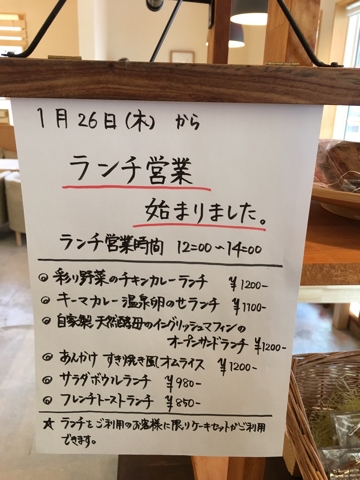 1月26日(木) から
ランチ営業
始まりました。
ランチ営業時間 12:00~14:00
◎ 彩り野菜のチキンカレーランチ ¥1200-
◎ キーマカレー温泉卵のせランチ ¥1100-
◎ 自家製天然酵母のイングリッシュマフィンの
オープンサンドランチ ¥1200-
◎ あんかけ すき焼き風オムライス ¥1200-
◎ サラダボウルランチ ¥980-
◎ フレンチトーストランチ ¥850-
☆ ランチをご利用のお客様に限りケーキセットがご利用
できます。